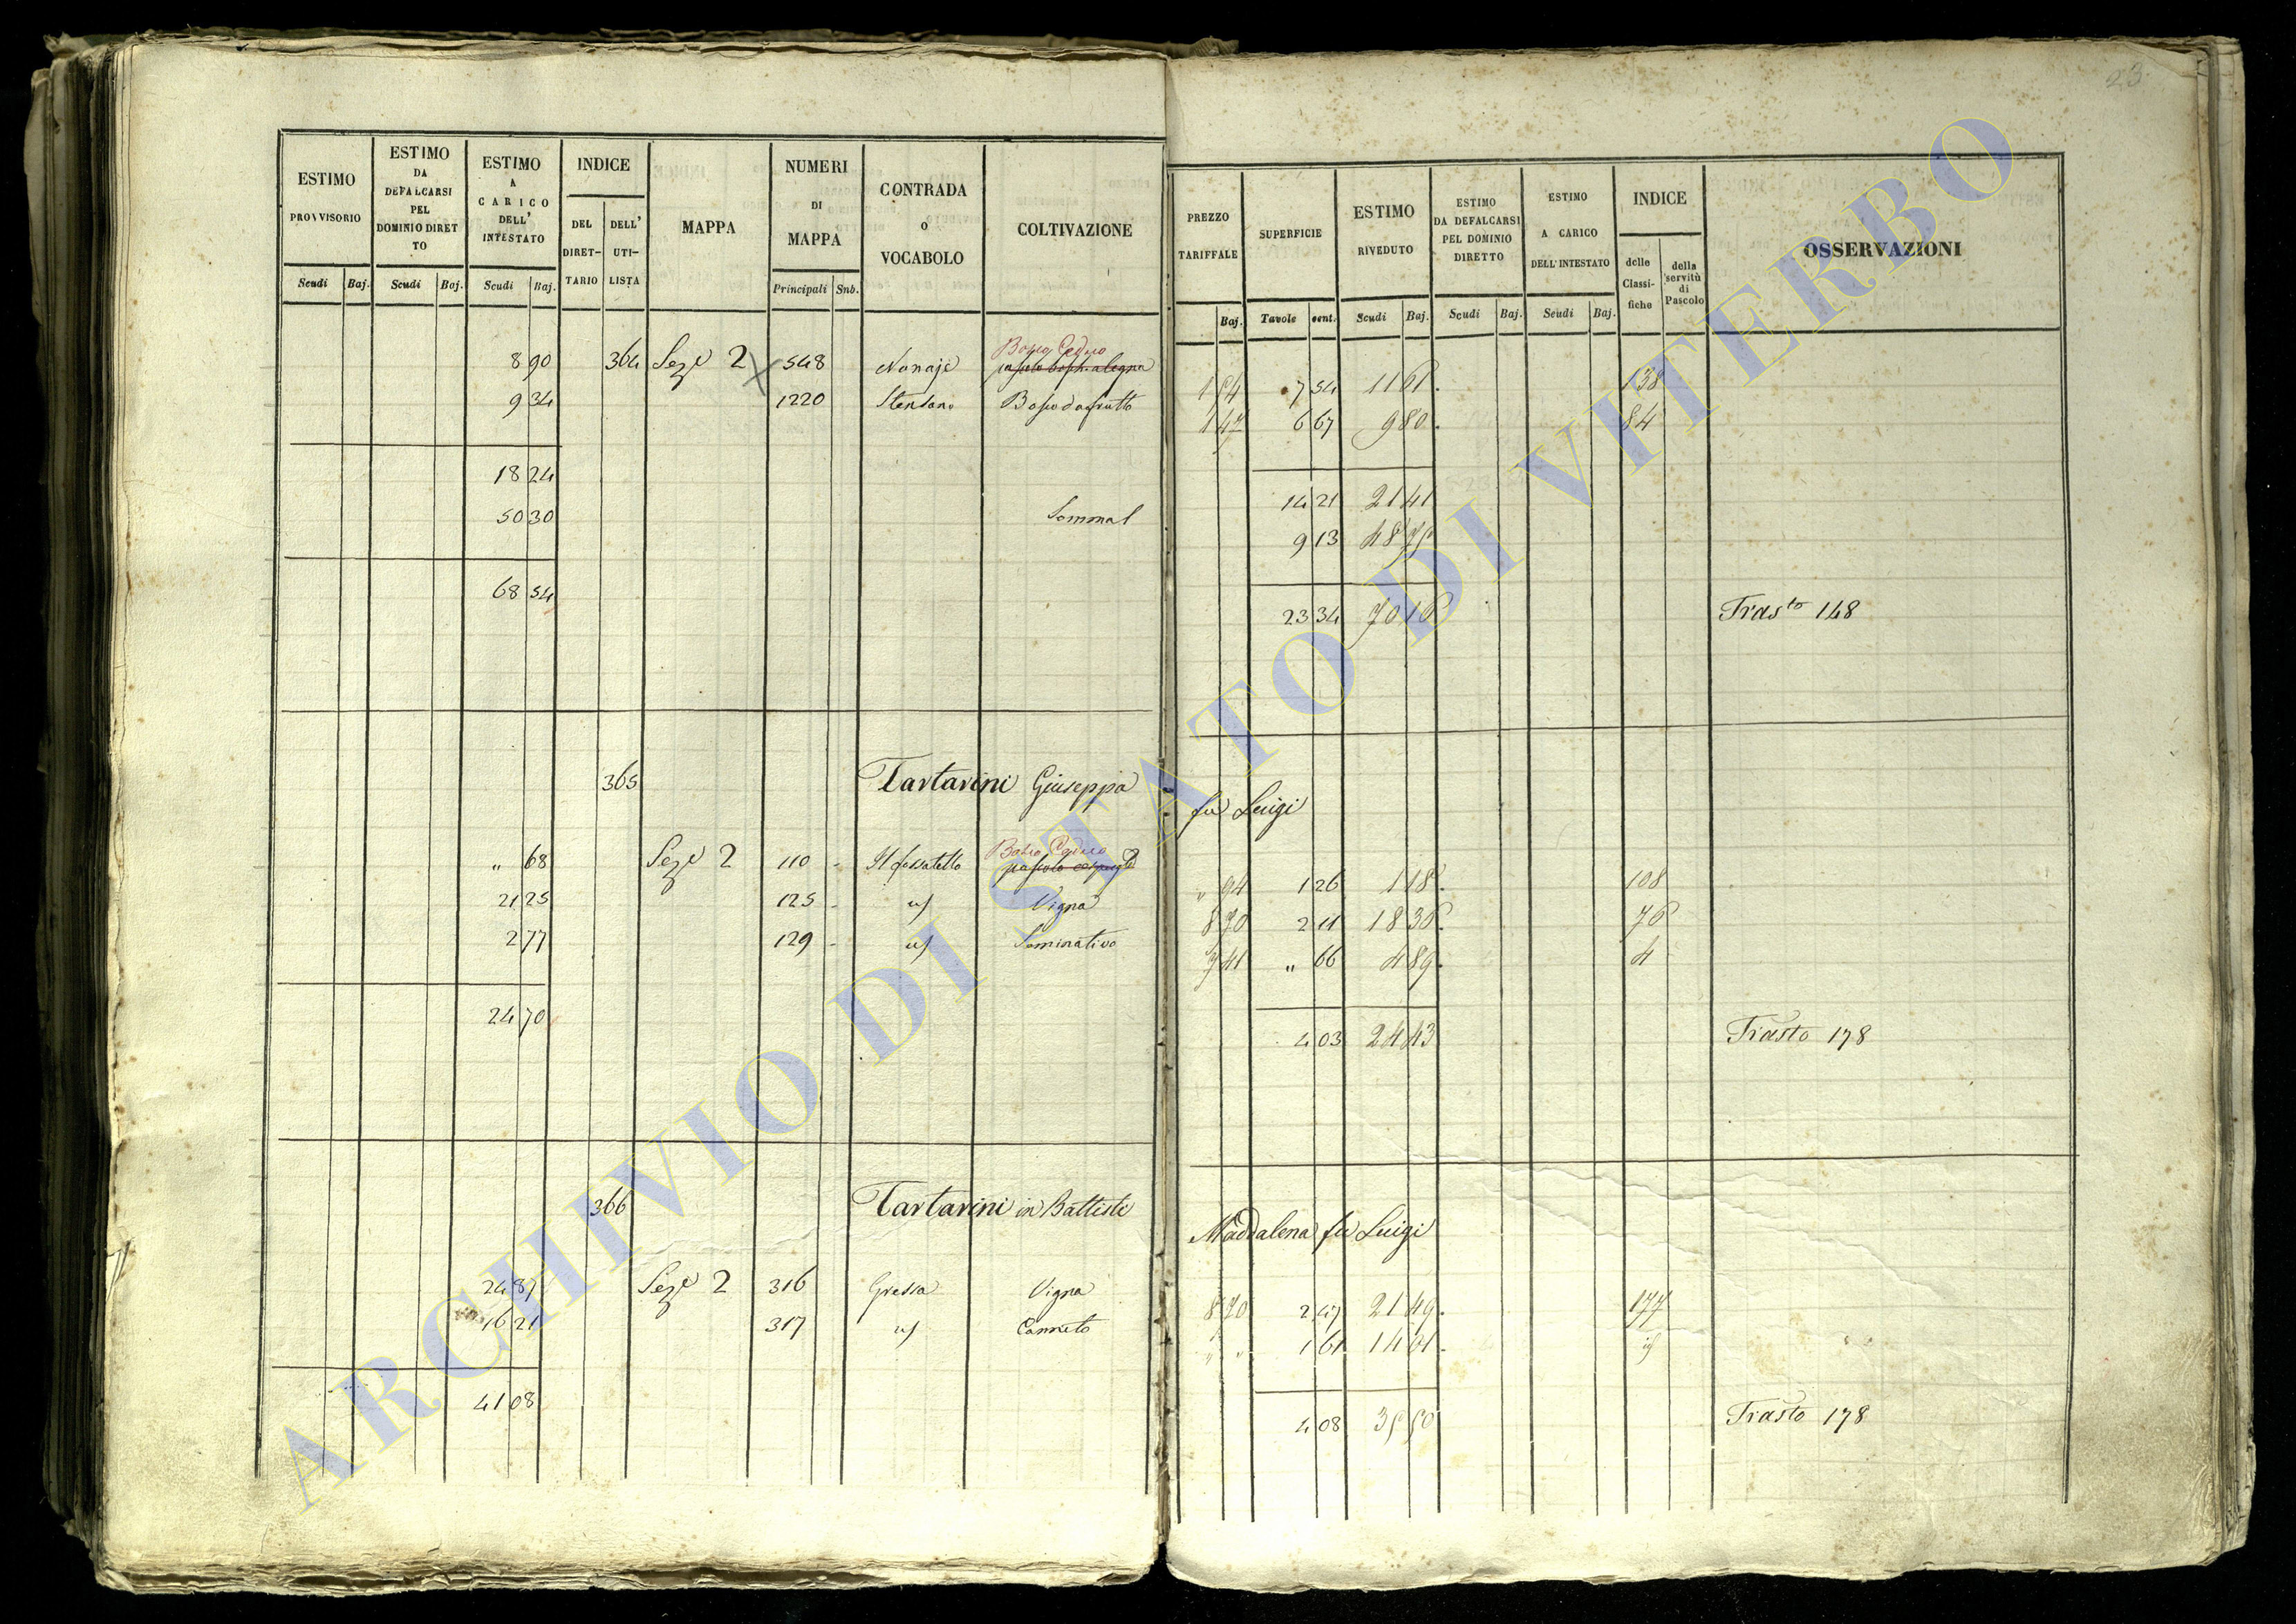 23
ESTIMO PROVVISORIO
ESTIMO DA DEFALCARSI PEL DOMINIO DIRETTO
ESTIMO A CARICO DELL' INTESTATO
INDICE
DEL DIRETTARIO
DELL' UTILISTA
MAPPA
NUMERI DI MAPPA
CONTRADA O VOCABOLO
COLTIVAZIONE
Scudi Baj. Scudi Baj. Scudi Baj. Principali Snb.
PREZZO TARIFFALE
SUPERFICIE
ESTIMO RIVEDUTO
ESTIMO DA DEFALCARSI PEL DOMINIO DIRETTO
ESTIMO A CARICO DELL' INTESTATO
INDICE
delle Classifiche
della servitù di Pascolo
OSSERVAZIONI
Baj. Tavole cent. Scudi Baj. Scudi Baj. Scudi Baj.
Bosco Ceduo
8 90 364 Seze 2 548 Nonaje 1 54 7 54 11 61 138
9 34 1220 Stensano Bosco da frutto 1 47 6 67 9 80 84
18 24 14 21 21 41
50 30 Sommal 9 13 48 75
68 54 23 34 70 16 Trasto 148
365 Tartarini Giuseppa fu Luigi
Bosco Ceduo
" 68 Seze 2 110 Il fossatello pascolo " 94 1 26 1 18 108
21 25 125 id Vigna 8 70 2 11 18 36 76
2 77 129 id Seminativo 7 41 " 66 4 89 4
24 70 4 03 24 43 Trasto 178
366 Tartarini in Battisti Maddalena fu Luigi
24 87 Seze 2 316 Gressa Vigna 8 70 2 47 21 49 177
16 21 317 id Canneto " " 1 61 14 01 id
41 08 4 08 35 50 Trasto 178
ARCHIVIO DI STATO DI VITERBO